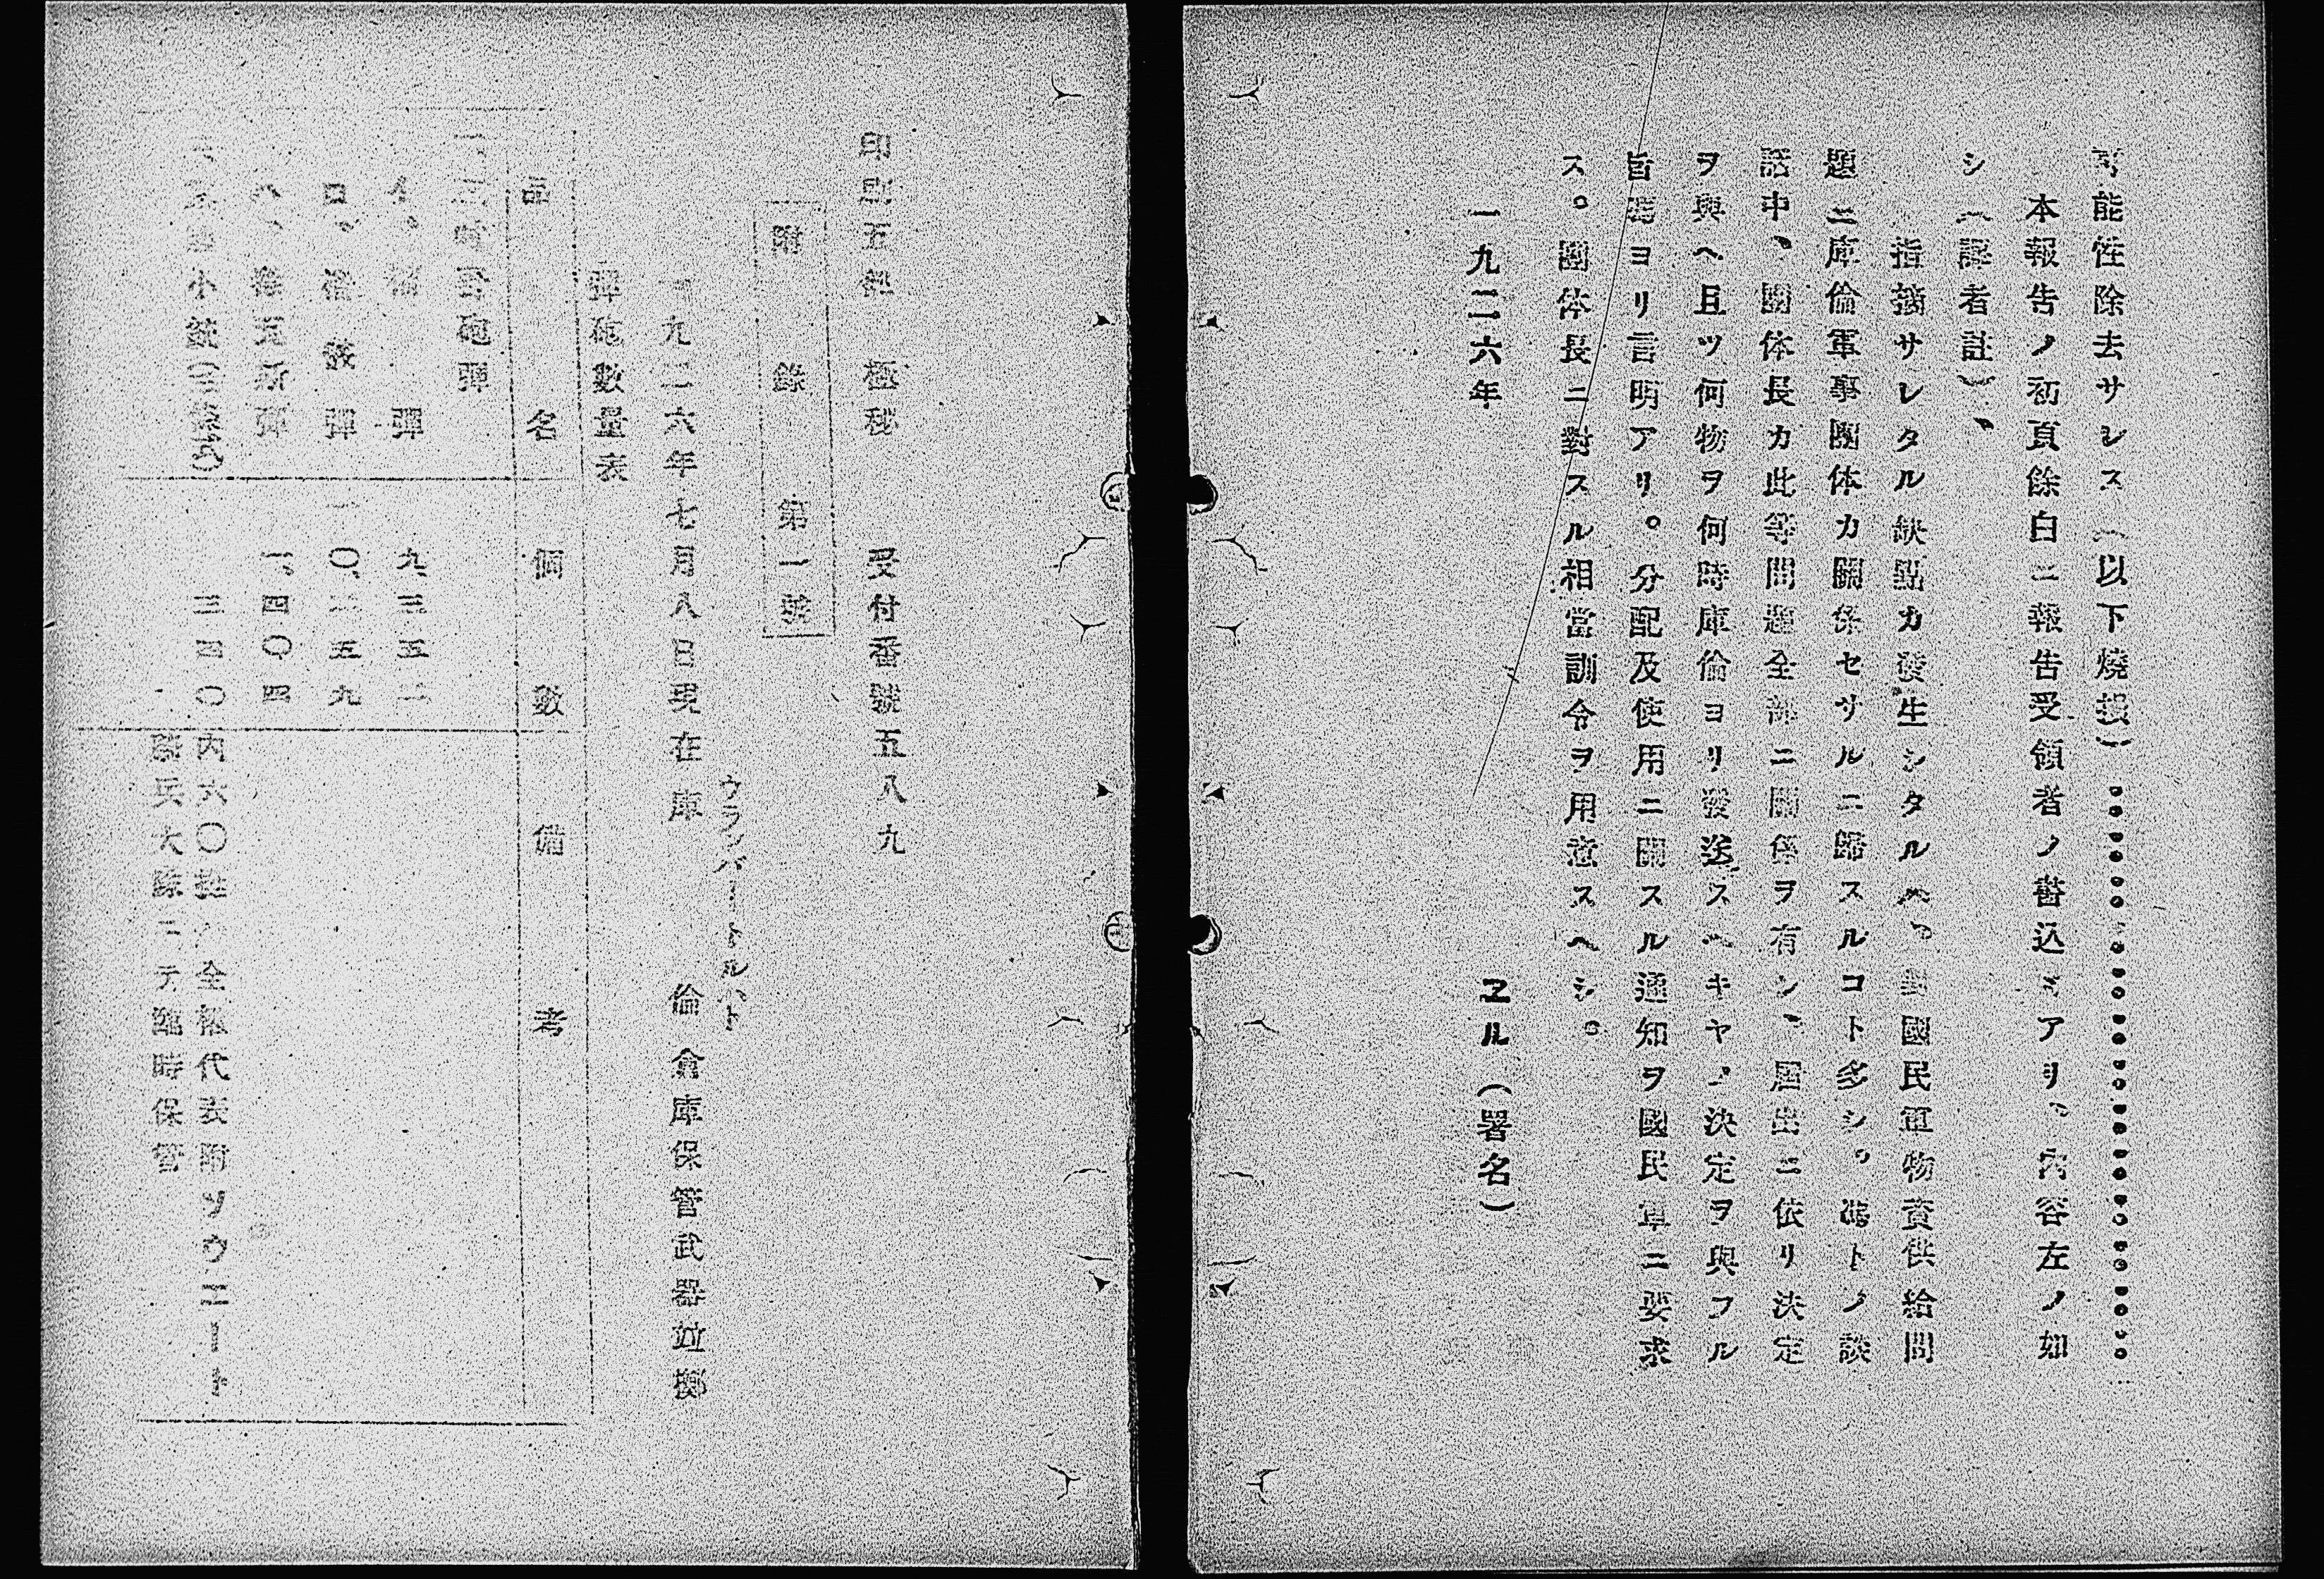 可能性除去サレス(以下燒損)
本報告ノ初頁餘白ニ報告受領者ノ書込ミアリ、內容左ノ如
シ(譯者註)、
指摘サレタル缺點カ發生シタルハ、對國民軍物資供給問
題ニ庫倫軍事團体カ關係セサルニ歸スルコト多シ。馮トノ談
話中、團体長カ此等問題全部ニ關係ヲ有シ、屆出ニ依リ決定
ヲ與ヘ且ツ何物ヲ何時庫倫ヨリ發送スヘキヤノ決定ヲ與フル
旨馮ヨリ言明アリ。分配及使用ニ關スル通知ヲ國民軍ニ要求
ス。團体長ニ對スル相當訓令ヲ用意スヘシ。
一九二六年
ヱル(署名)
印刷五組 極秘 受付番號五八九
附錄 第一號
一九二六年七月八日現在庫倫倉庫保管武器竝擲
ウランバートルホト
彈砲數量表
品名 個數 備考
三吋野砲彈
イ。榴彈 九、三五二
ロ、榴散彈 一〇、二五九
ハ、 彈 一、四〇四
小銃(三 式) 三四〇 內六〇挺ハ全權代表附ソウエート
騎兵大隊ニテ臨時保管